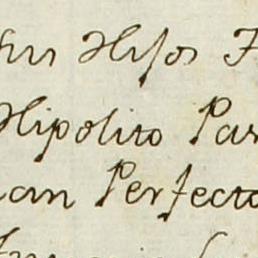 sus Hijos F
Hipolito Pas
an Perfecto